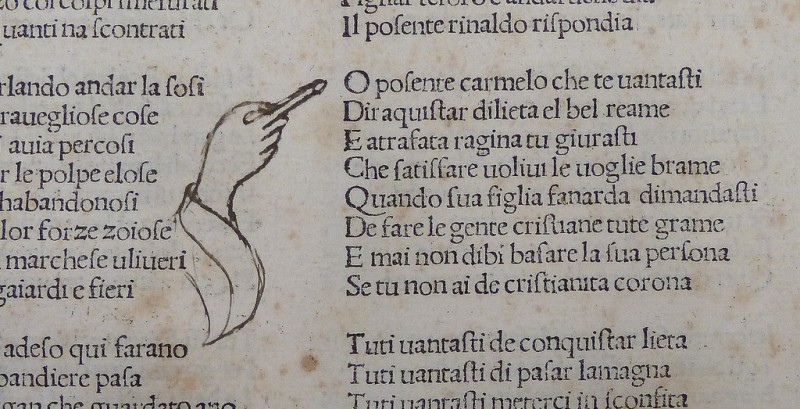 quanti na ſcontrati
rlando andar la ſoſi
rauegliose coſe
auia percoſi
r le polpe eloſe
habandonoſi
lor forze zoioſe
marcheſe uliueri
gaiardi e fieri
adeſo qui farano
bandiere paſa
gan che guardato ano
Il poſente rinaldo riſpondia
O poſente carmelo che te uantaſti
Dir aquiſtar dilieta el bel reame
E atrafata ragina tu giuraſti
Che ſatiſfare uoliui le uoglie brame
Quando ſua figlia fanarda dimandaſti
De fare le gente criſtiane tute grame
E mai non dibi baſare la ſua perſona
Se tu non ai de criſtianita corona
Tuti uantaſti de conquiſtar lieta
Tuti uantaſti di paſar lamagna
Tuti uantaſti meterci in ſconfita